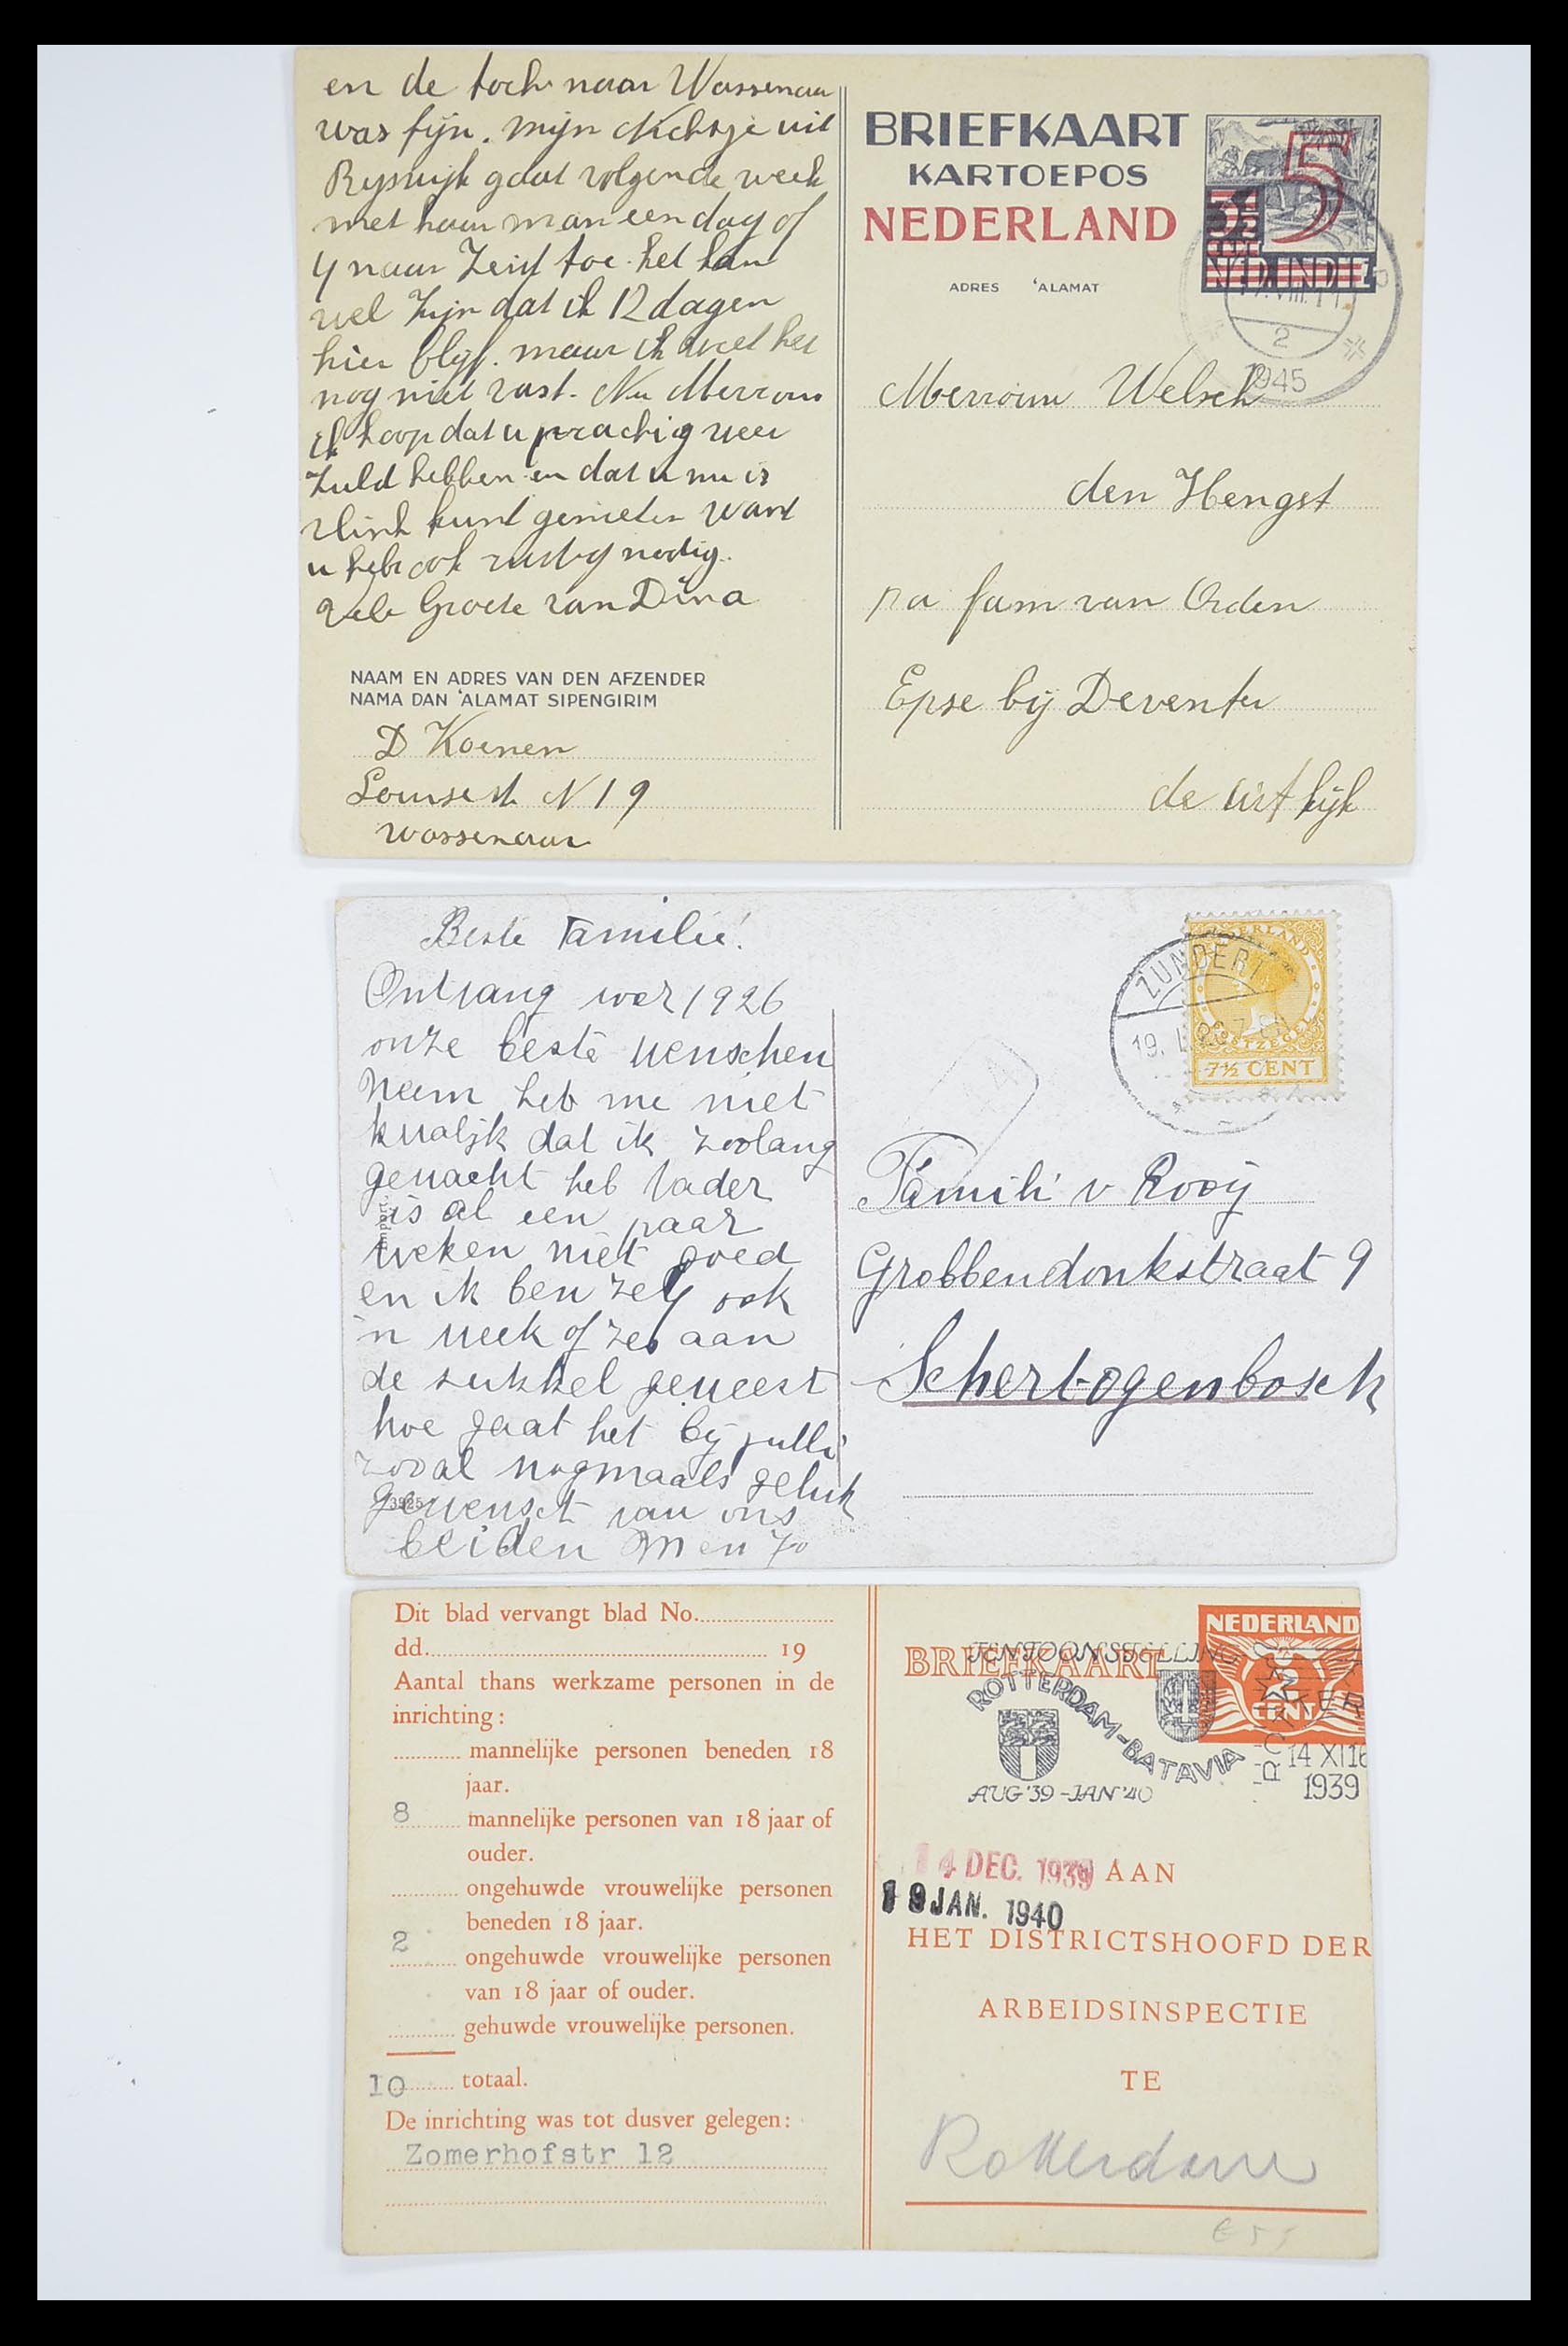 en de toch naar Wassenaar
was fijn. mijn Nichtje uit
Ryswijk gaat volgende week
met haar man een dag of
4 naar Zeist toe. het kan
wel zijn dat ik 12 dagen
hier blijf. maar ik weet het
nog niet vast. Nu Mevrouw
ik hoop dat u prachtig weer
zuld hebben en dat u nu is
flink kunt genieten want
u heb ook rust nodig.
Vele Groete van Dina
NAAM EN ADRES VAN DEN AFZENDER
NAMA DAN 'ALAMAT SIPENGIRIM
D Koenen
Louisestr N 19
Wassenaar
BRIEFKAART
KARTOEPOS
NEDERLAND
ADRES 'ALAMAT
5
3½
CENT
NED. INDIE
2
1945
Mevrouw Welsch
den Hengst
pa fam van Orden
Epse bij Deventer
de uitkijk
Beste Familie!
Ontvang voor 1926
onze beste wenschen
Neem heb me niet
kwalijk dat ik zoolang
gewacht heb Vader
is al een paar
weken niet goed
en ik ben zelf ook
'n week of zes aan
de sukkel geweest
hoe gaat het bij julli
zooal nogmaals geluk
gewenscht van ons
beiden M en Jo
3925
NEDERLAND
POSTZEGEL
7½ CENT
ZUNDERT
19. I. 26. 7
Famili v Rooij
Grobbendonkstraat 9
Schertogenbosch
Dit blad vervangt blad No.
dd. 19
Aantal thans werkzame personen in de
inrichting:
mannelijke personen beneden 18
jaar.
8 mannelijke personen van 18 jaar of
ouder.
ongehuwde vrouwelijke personen
beneden 18 jaar.
2 ongehuwde vrouwelijke personen
van 18 jaar of ouder.
gehuwde vrouwelijke personen.
10 totaal.
De inrichting was tot dusver gelegen:
Zomerhofstr 12
BRIEFKAART
TENTOONSTELLING
ROTTERDAM-BATAVIA
AUG '39 - JAN '40
NEDERLAND
2
CENT
14 XI 16
1939
14 DEC. 1939
AAN
19 JAN. 1940
HET DISTRICTSHOOFD DER
ARBEIDSINSPECTIE
TE
Rotterdam